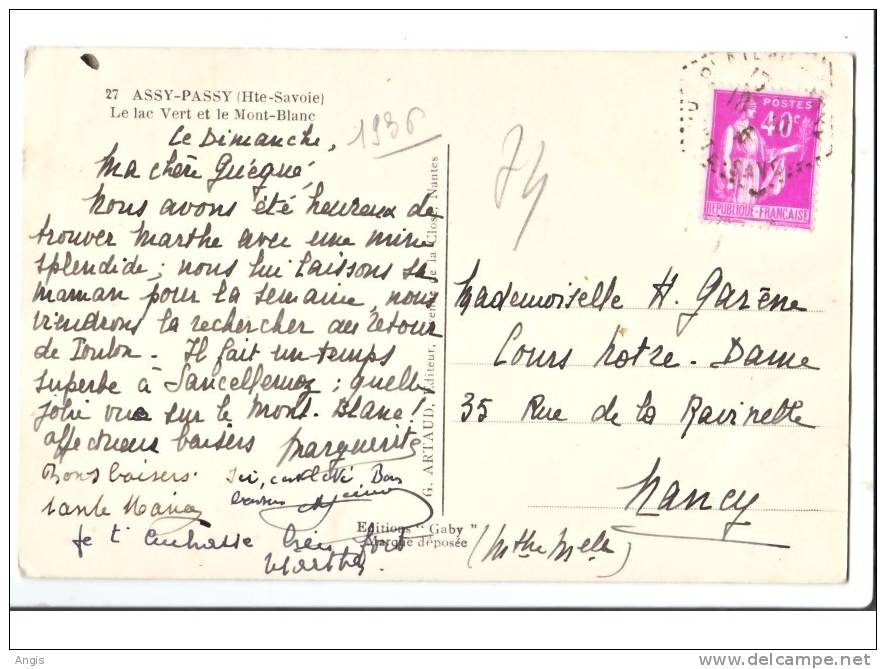 27 ASSY-PASSY (Hte-Savoie)
Le lac Vert et le Mont-Blanc
Le Dimanche,
1936
Ma chère Guégué,
Nous avons été heureux de
trouver Marthe avec une mine
splendide; nous lui laissons sa
maman pour la semaine, nous
viendrons la rechercher au retour
de Toulon. Il fait un temps
superbe à Sancellemoz; quelle
jolie vue sur le Mont-Blanc!
affectueux baisers Marguerite
Bons baisers.
tante
Je t'embrasse bien fort
Marthe
G. ARTAUD, Editeur, de la Close, Nantes
Editions "Gaby"
Marque déposée
74
POSTES
40c
REPUBLIQUE-FRANÇAISE
Mademoiselle H. Garène
Cours Notre-Dame
35 Rue de la Ravinelle
Nancy
(Mthe Melle)
Angis
www.delcampe.net